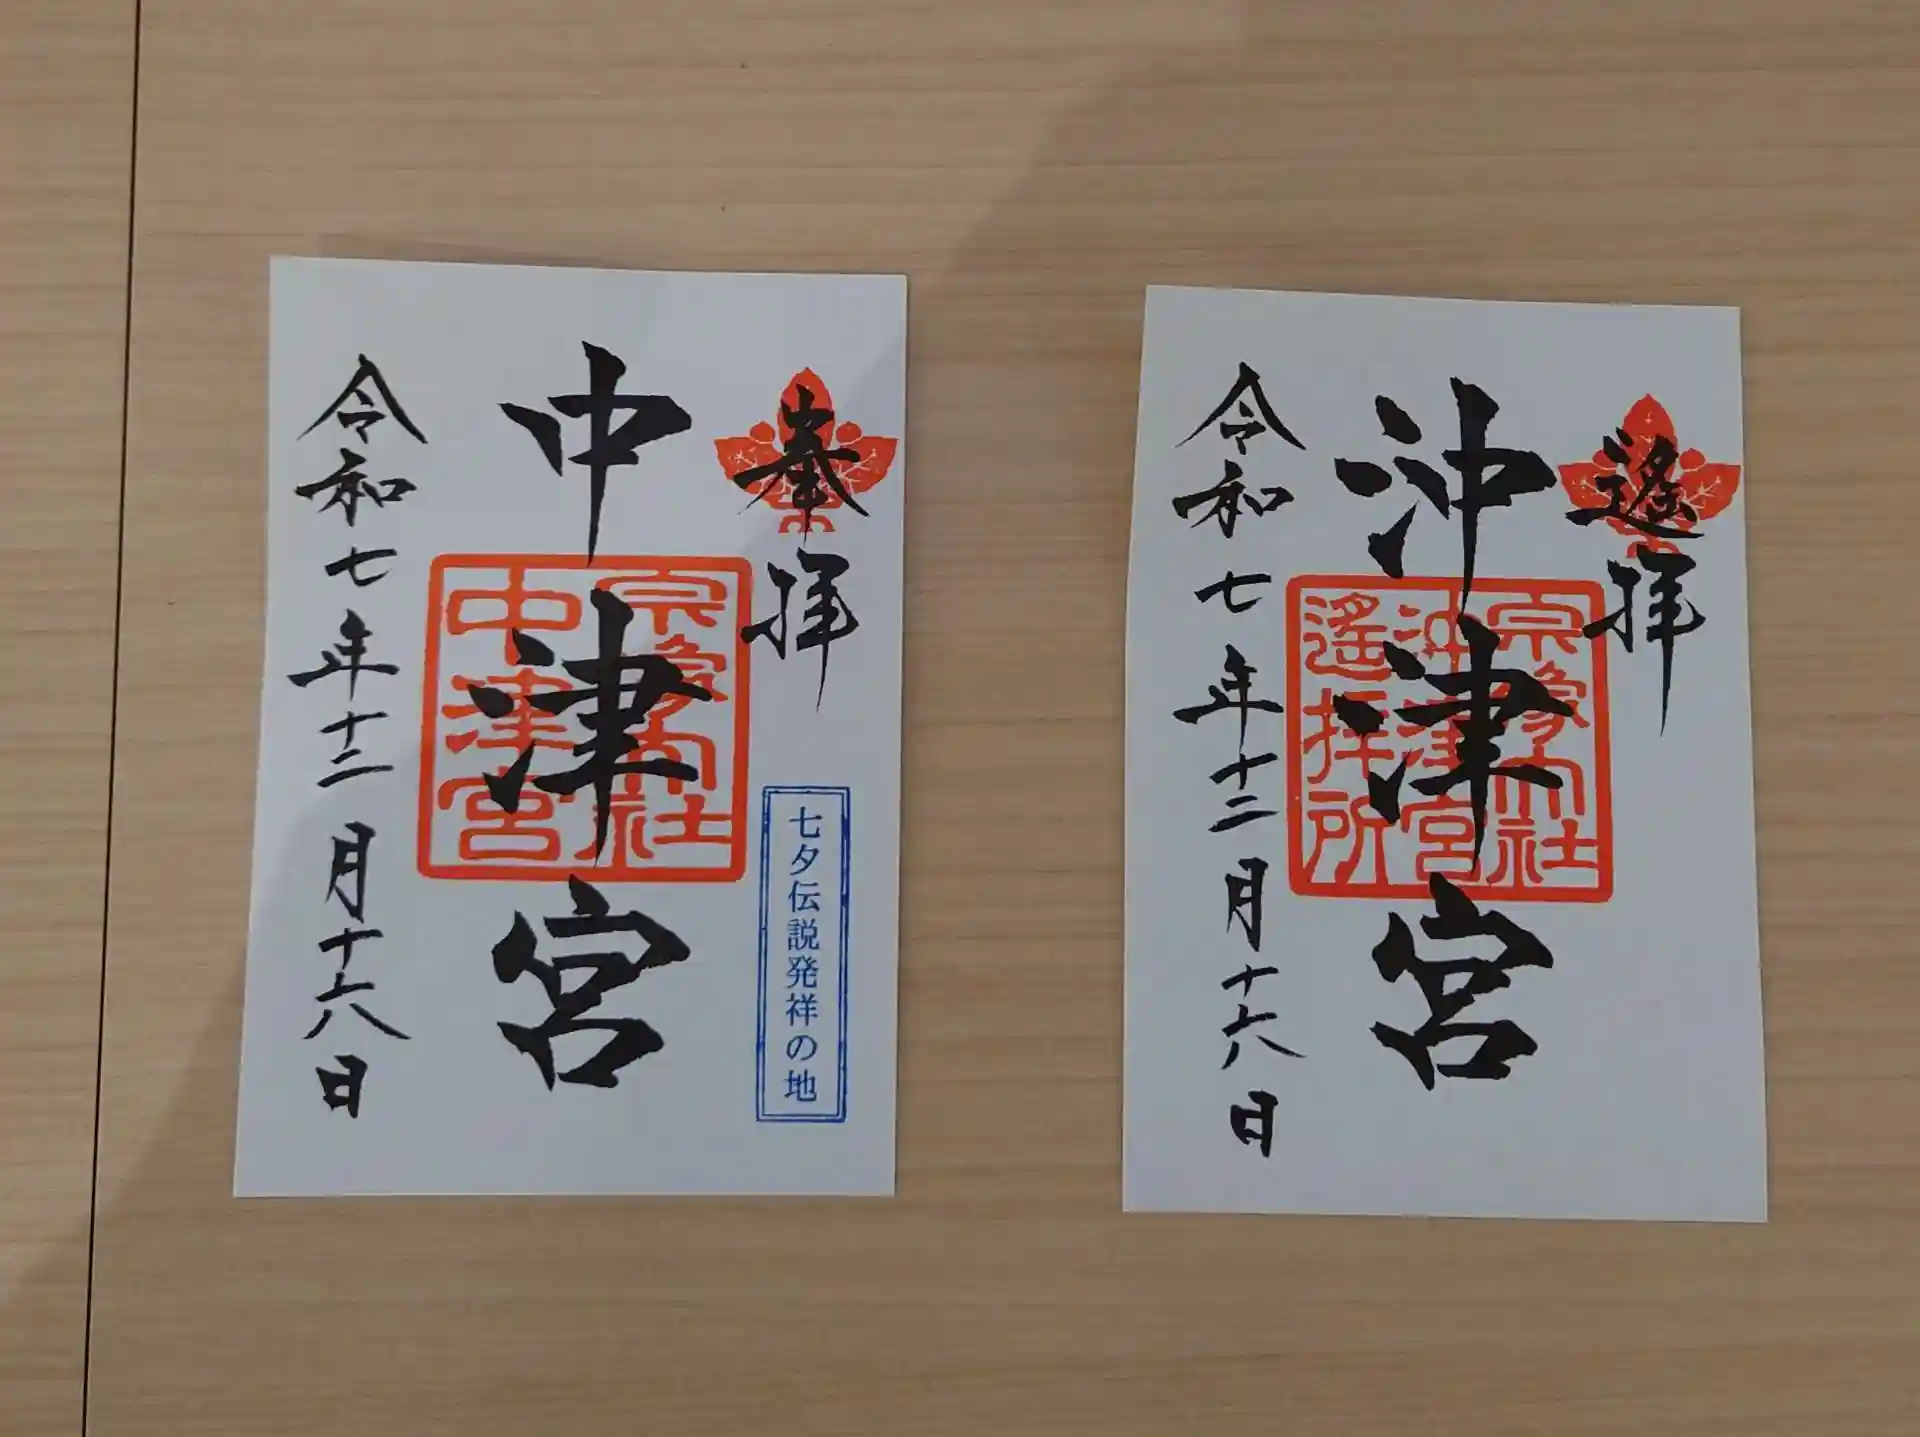 奉拝
中津宮
宗像大社
中津宮
七夕伝説発祥の地
令和七年十二月十六日
遙拝
沖津宮
宗像大社
沖津宮
遙拝所
令和七年十二月十六日